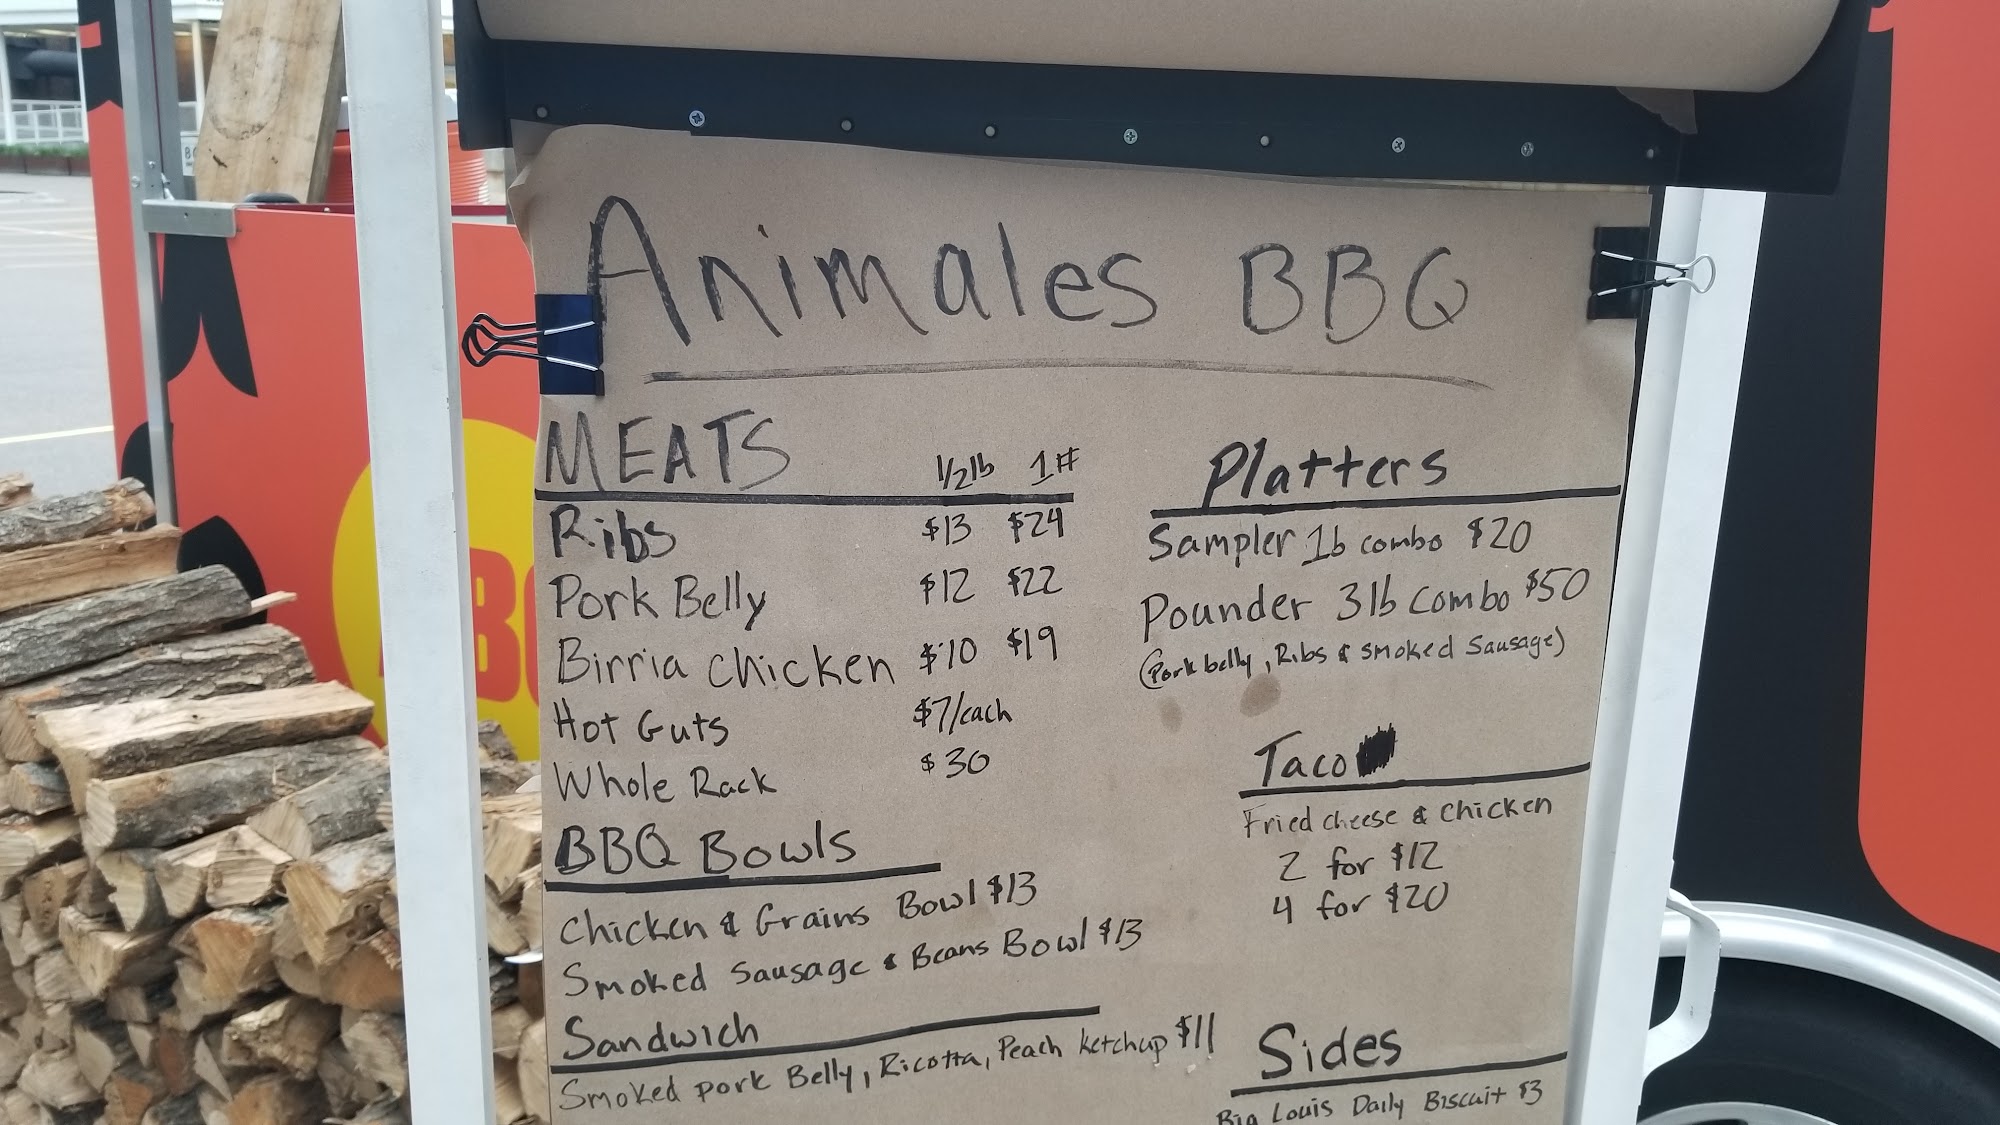 Animales BBQ
MEATS 1/2lb 1#
Ribs $13 $24
Pork Belly $12 $22
Birria chicken $10 $19
Hot Guts $7/each
Whole Rack $30
BBQ Bowls
chicken & Grains Bowl $13
Smoked Sausage & Beans Bowl $13
Sandwich
Smoked pork Belly, Ricotta, Peach ketchup $11
Platters
Sampler 1b combo $20
Pounder 3lb combo $50
(Pork belly, Ribs & smoked Sausage)
Taco
Fried cheese & chicken
2 for $12
4 for $20
Sides
Big Louis Daily Biscuit $3